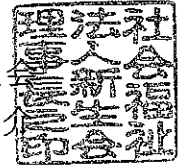 社会福祉
法人新生会
理事長之印